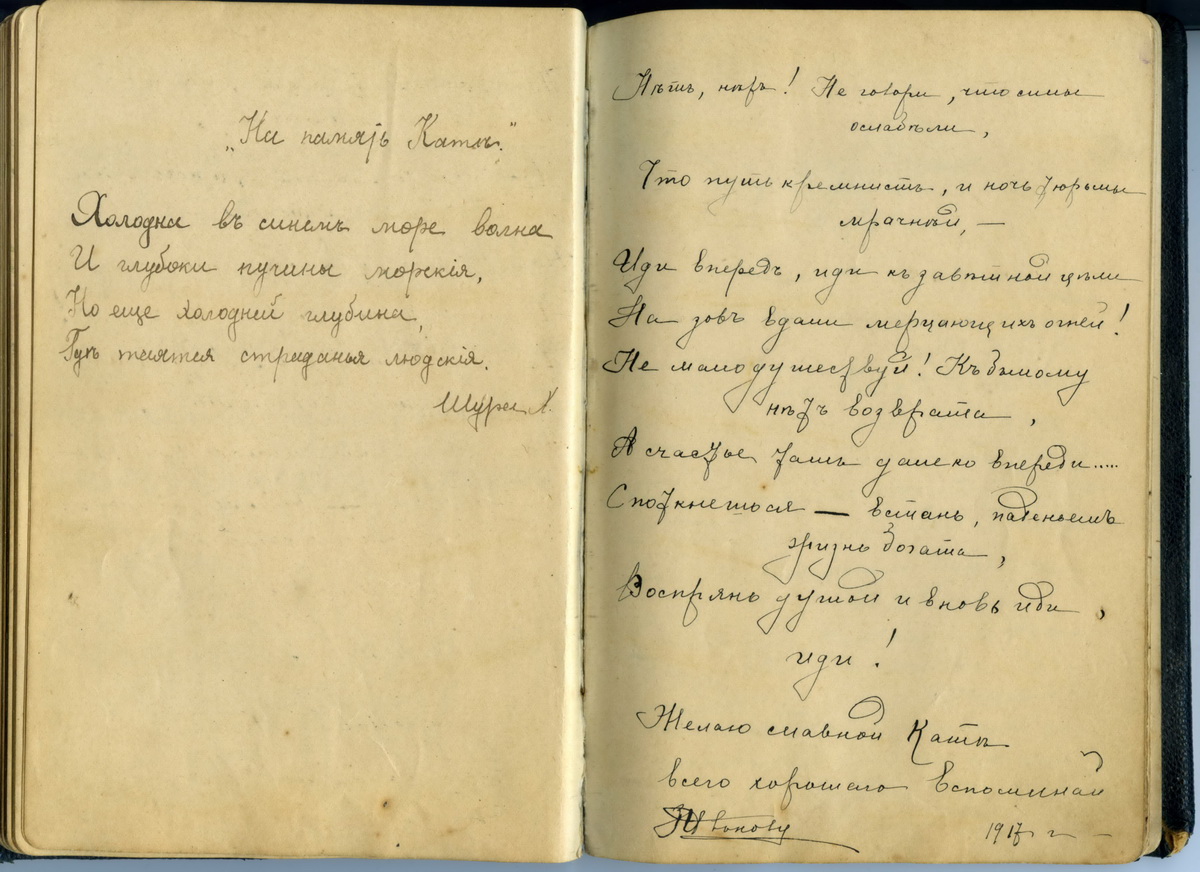 „На память Катѣ."
Холодна въ синемъ море волна
И глубоки пучины морскія,
Но еще холодней глубина,
Гдѣ таятся страданья людскія.
Шура Х.
Нѣтъ, нѣтъ! Не говори, что силы
ослабѣли,
Что путь кремнистъ, и ночь тюрьмы
мрачнѣй, —
Иди впередъ, иди къ завѣтной цѣли
На зовъ вдали мерцающихъ огней!
Не малодушествуй! Къ былому
нѣтъ возврата,
А счастье тамъ далеко впереди.....
Споткнешься — встань, паденьемъ
жизнь богата,
Воспрянь душой и вновь иди,
иди!
Желаю славной Катѣ
всего хорошаго вспоминай
1917 г —